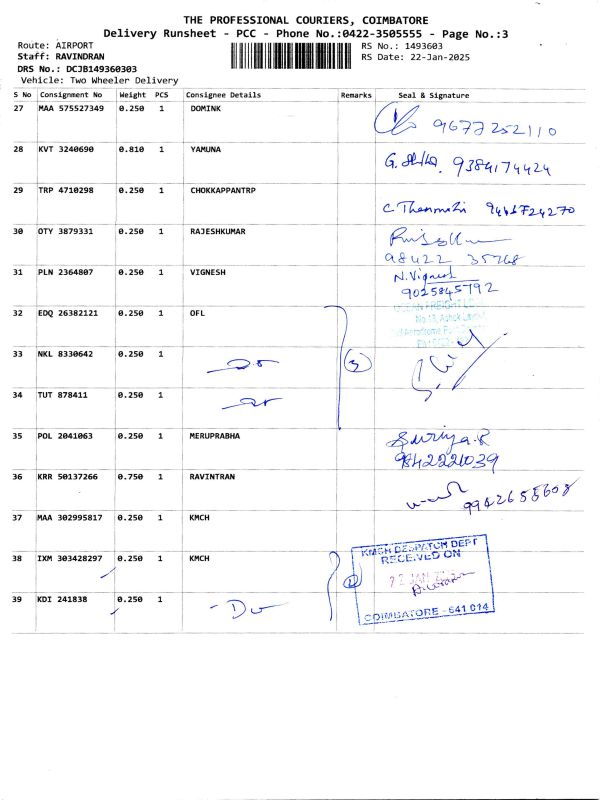 THE PROFESSIONAL COURIERS, COIMBATORE
Delivery Runsheet - PCC - Phone No.:0422-3505555 - Page No.:3
Route: AIRPORT RS No.: 1493603
Staff: RAVINDRAN RS Date: 22-Jan-2025
DRS No.: DCJB149360303
Vehicle: Two Wheeler Delivery
S No Consignment No Weight PCS Consignee Details Remarks Seal & Signature
27 MAA 575527349 0.250 1 DOMINK
9677252110
28 KVT 3240690 0.810 1 YAMUNA
9384174424
29 TRP 4710298 0.250 1 CHOKKAPPANTRP
30 OTY 3879331 0.250 1 RAJESHKUMAR
98422
31 PLN 2364807 0.250 1 VIGNESH
N. Vignesh
9025845792
32 EDQ 26382121 0.250 1 OFL
33 NKL 8330642 0.250 1
3
34 TUT 878411 0.250 1
35 POL 2041063 0.250 1 MERUPRABHA
Suriya.R
36 KRR 50137266 0.750 1 RAVINTRAN
37 MAA 302995817 0.250 1 KMCH
38 IXM 303428297 0.250 1 KMCH
KMCH DESPATCH DEPT
RECEIVED ON
39 KDI 241838 0.250 1
COIMBATORE - 641 014